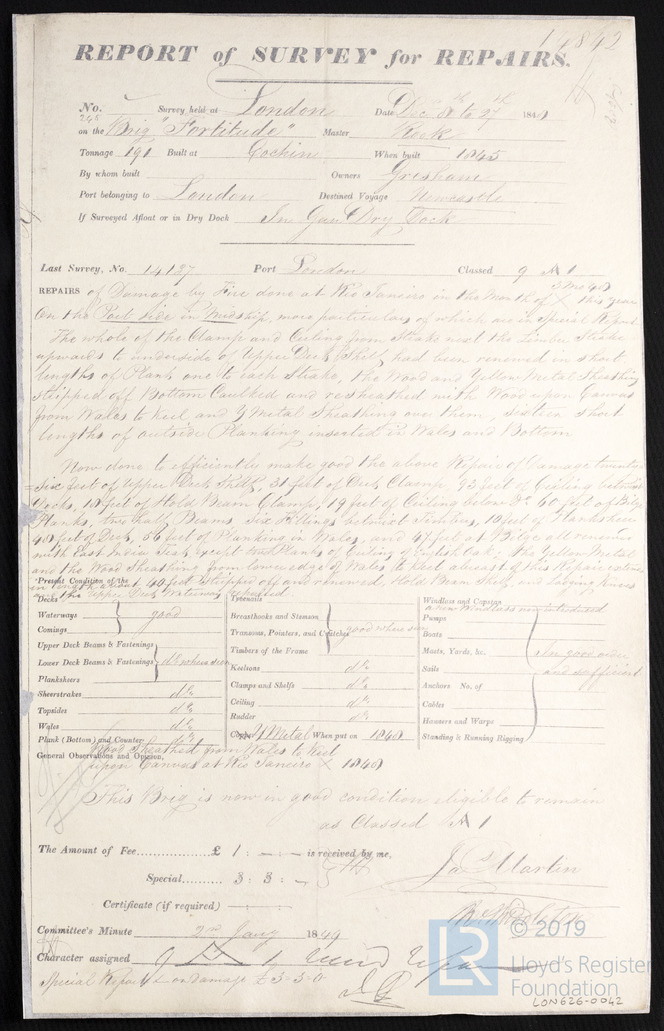 14842
REPORT of SURVEY for REPAIRS.
No. 248 Survey held at London Date Dec 8th to 27th 1848
on the Brig "Fortitude" Master Rook
Tonnage 191 Built at Cochin When built 1845
By whom built Owners Gresham
Port belonging to London Destined Voyage Newcastle
If Surveyed Afloat or in Dry Dock In Dry Dock
Last Survey, No. 14137 Port London Classed 9 A 1
5 Mo 48
REPAIRS of Damage by Fire done at Rio Janeiro in the Month of X this year
On the Port side in Midship, more particulars of which are in Special Report
The whole of the Clamp and Ceiling from Strake next the Limber Strake
upwards to underside of Upper Deck Shelf had been renewed in short
lengths of Plank one to each Strake, the Wood and Yellow Metal Sheathing
stripped off Bottom Caulked and resheathed with Wood upon Canvas
from Wales to Keel and Y Metal Sheathing over them, sixteen short
lengths of outside Planking inserted in Wales and Bottom
Now done to efficiently make good the above Repair of Damage twenty
Six feet of Upper Deck Shelf, 31 feet of Clamp 93 feet of Ceiling between
Decks, 18 feet of Hold Beam Clamp, 19 feet of Ceiling below Do 60 feet of Bilge
Planks, two half Beams, Six Fillings between Timbers, 10 feet of Planksheer
48 feet of Deck, 56 feet of Planking in Wales, and 47 feet at Bilge all renewed
with East India Teak except Planks of Ceiling of English Oak; the Yellow Metal
and the Wood Sheathing from lower edge of Wales to Keel abreast of this Repair
in length about 40 feet stripped off and renewed, Hold Beam Shelf and lodging Knees
and the Upper Deck Waterway
Present Condition of the
Decks
Waterways good
Comings
Upper Deck Beams & Fastenings
Lower Deck Beams & Fastenings do where seen
Planksheers
Sheerstrakes do
Topsides do
Wales do
Plank (Bottom) and Counter do
Treenails
Breasthooks and Stemson
Transoms, Pointers, and Crutches good where seen
Timbers of the Frame
Keelsons do
Clamps and Shelfs do
Ceiling do
Rudder do
Copper Y Metal When put on 1848
Windlass and Capstan
a new Windlass now introduced
Pumps
Boats
Masts, Yards, &c. In good order
Sails and sufficient
Anchors No. of
Cables
Hawsers and Warps
Standing & Running Rigging
Wood Sheathed from Wales to Keel
General Observations and Opinion,
upon Canvas at Rio Janeiro X 1848
This Brig is now in good condition eligible to remain
as Classed A 1
The Amount of Fee £ 1 : - : - is received by me,
Special 3 : 3 : -
Jas Martin
Certificate (if required) - : - : -
Committee's Minute 2nd Jany 1849
Character assigned 9 A 1
Special Report on damage £3-3-0
LR © 2019
Lloyd's Register
Foundation
LON626-0042